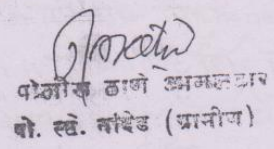 पोलीस ठाणे अमलदार
पो. स्टे. नांदेड (ग्रामीण)